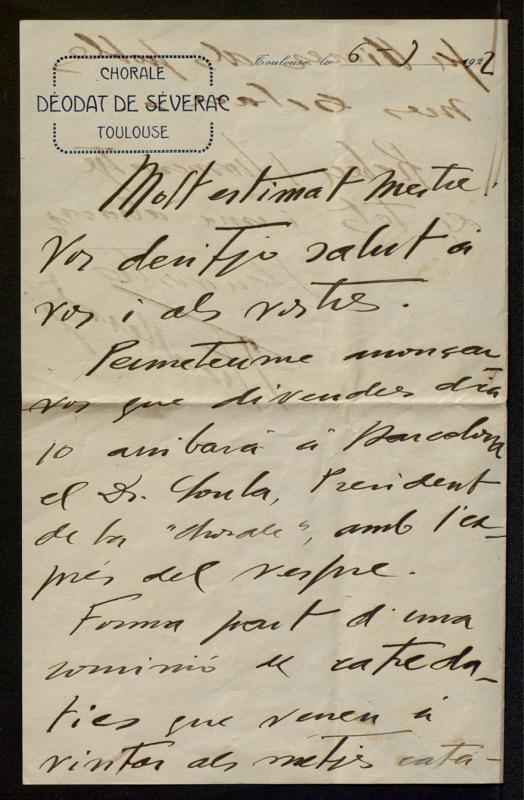 CHORALE
DÉODAT DE SÉVERAC
TOULOUSE
Toulouse, le 6 - 1922
Molt estimat mestre:
Vos desitjo salut à
vos i als vostres.
Permeteume anonçar
vos que divendres dia
10 arribarà à Barcelona
el Dr. Soula, President
de la "Chorale", amb l'ex-
prés del vespre.
Forma part d'una
comissió de catedra-
tics que venen à
visitar als metjes cata-